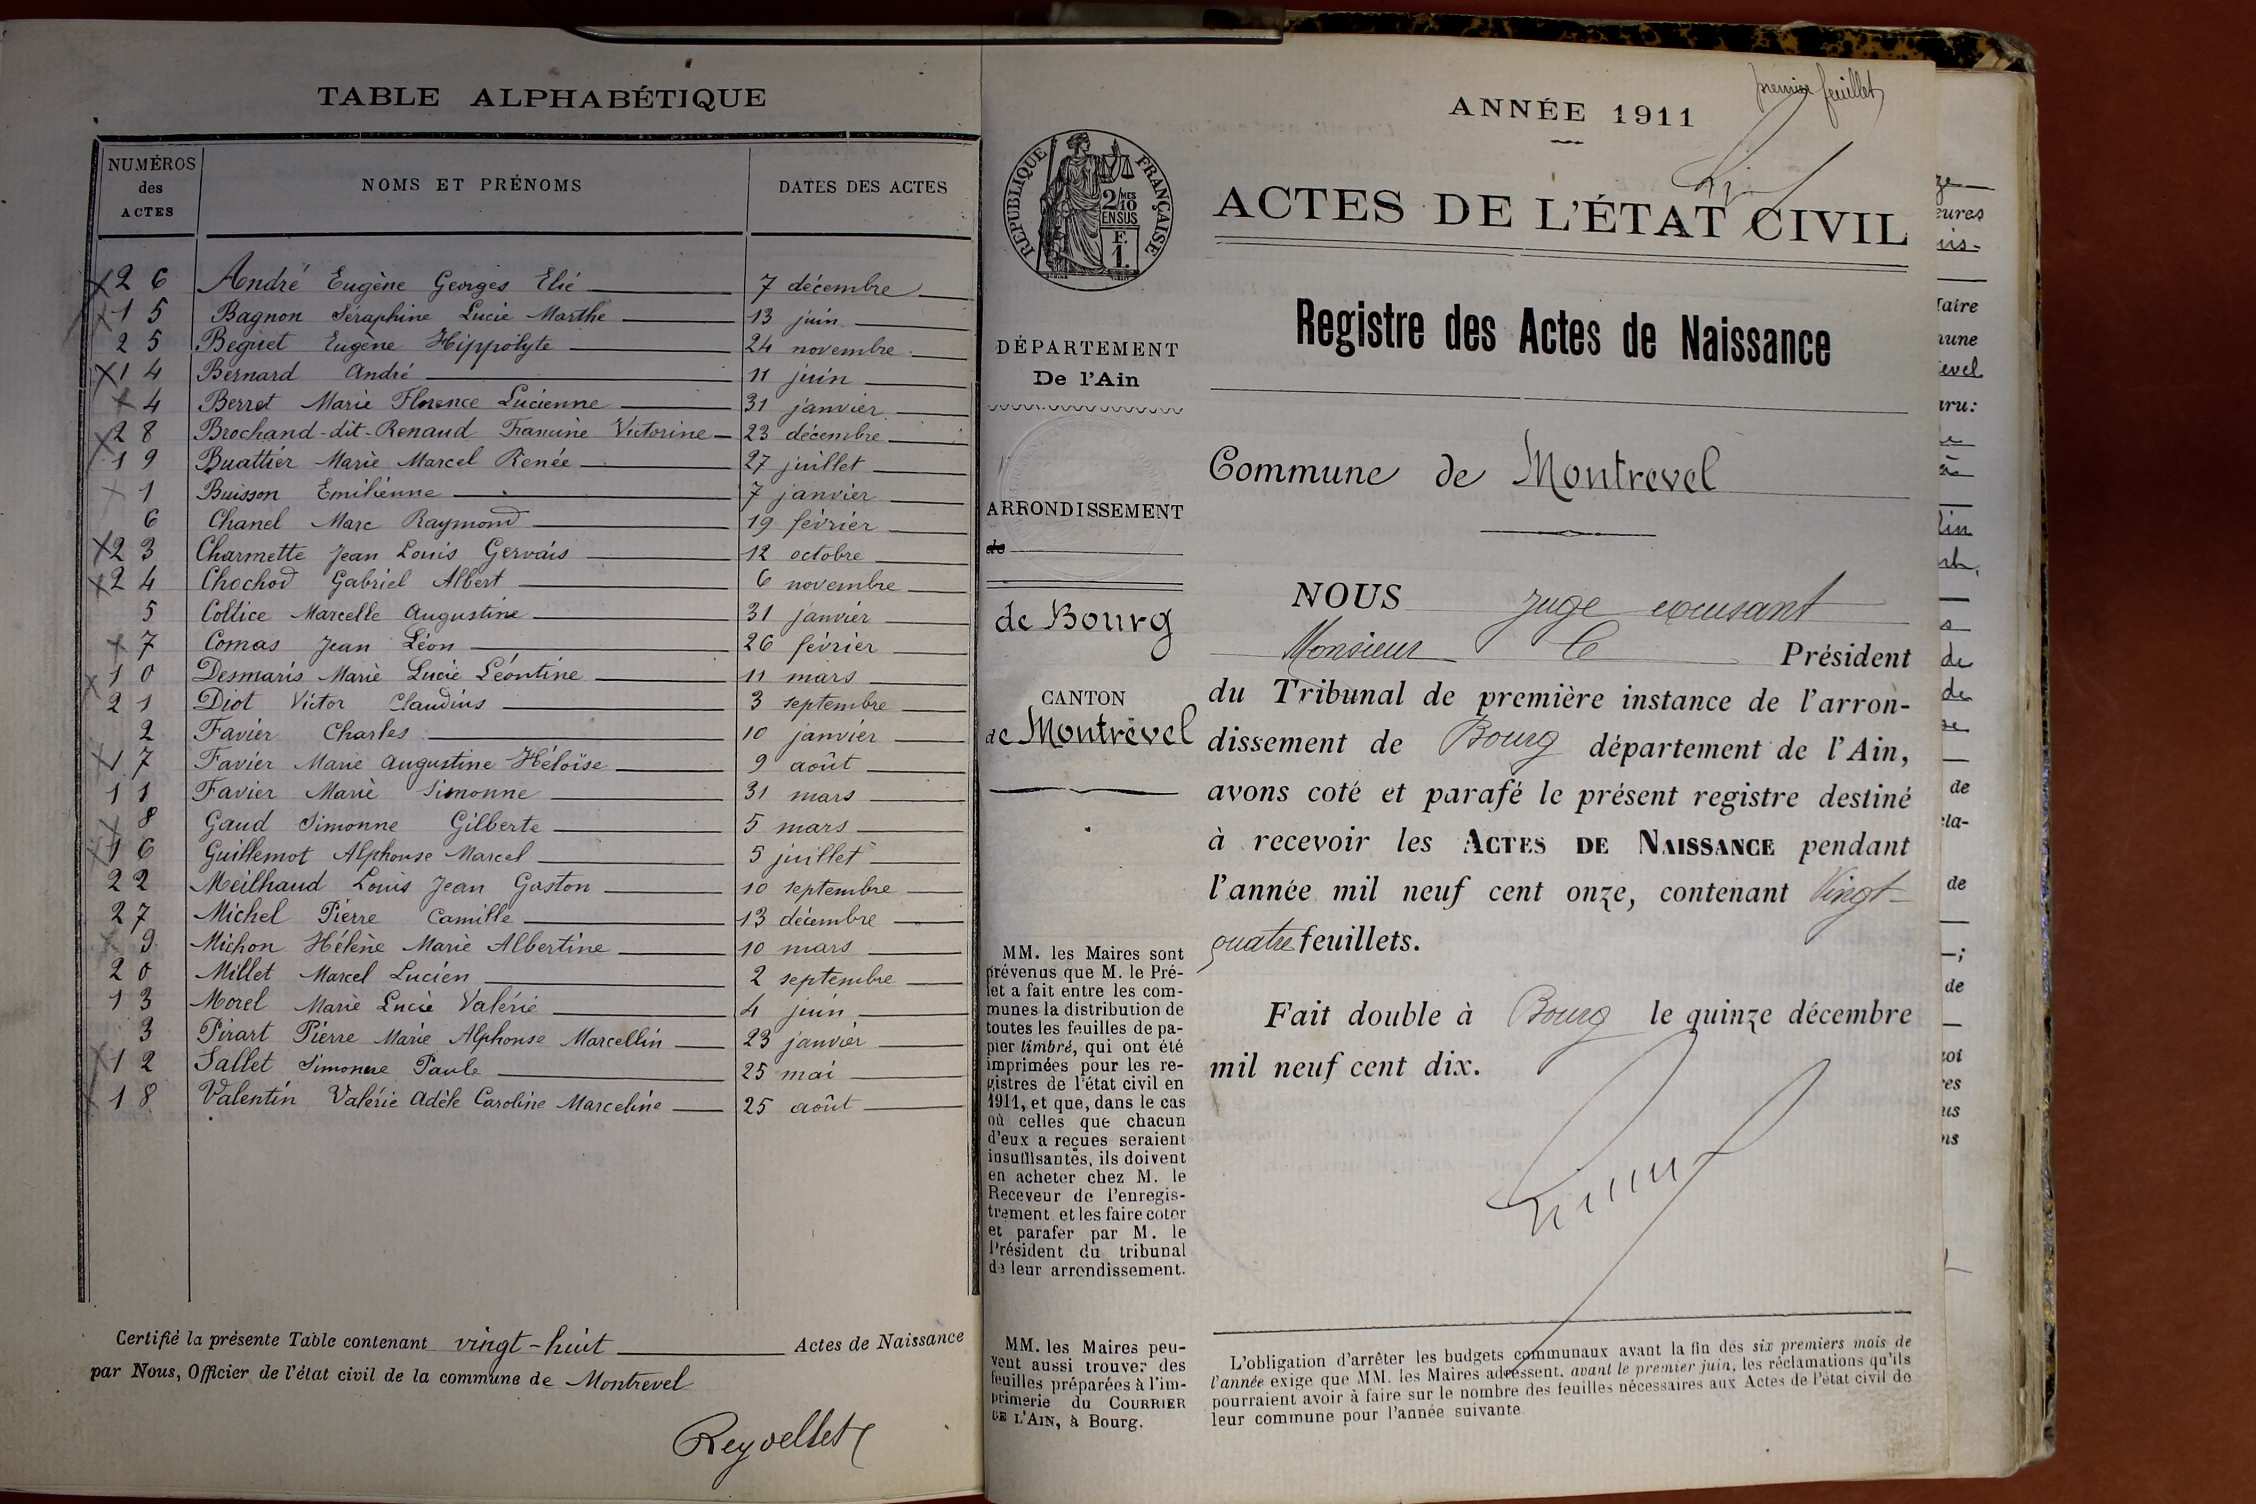 TABLE ALPHABÉTIQUE
NUMÉROS des ACTES NOMS ET PRÉNOMS DATES DES ACTES
26 André Eugène Georges Elie 7 décembre
15 Bagnon Séraphine Lucie Marthe 13 juin
25 Beguet Eugène Hippolyte 24 novembre
14 Bernard André 11 juin
4 Berret Marie Florence Lucienne 31 janvier
28 Brochand-dit-Renaud Francine Victorine 23 décembre
19 Buattier Marie Marcel Renée 27 juillet
1 Buisson Emilienne 7 janvier
6 Chanel Marc Raymond 19 février
23 Charmette Jean Louis Gervais 12 octobre
24 Chochod Gabriel Albert 6 novembre
5 Coltice Marcelle Augustine 31 janvier
7 Comas Jean Léon 26 février
10 Desmaris Marie Lucie Léontine 11 mars
21 Diot Victor Claudius 3 septembre
2 Favier Charles 10 janvier
17 Favier Marie Augustine Héloïse 9 août
11 Favier Marie Simonne 31 mars
8 Gaud Simonne Gilberte 5 mars
16 Guillemot Alphonse Marcel 5 juillet
22 Meilhaud Louis Jean Gaston 10 septembre
27 Michel Pierre Camille 13 décembre
9 Michon Hélène Marie Albertine 10 mars
20 Millet Marcel Lucien 2 septembre
13 Morel Marie Lucie Valérie 4 juin
3 Pirart Pierre Marie Alphonse Marcellin 23 janvier
12 Sallet Simonne Paule 25 mai
18 Valentin Valérie Adèle Caroline Marceline 25 août
Certifié la présente Table contenant vingt-huit Actes de Naissance
par Nous, Officier de l'état civil de la commune de Montrevel
Reyvellet
premier feuillet
ANNÉE 1911
RÉPUBLIQUE FRANÇAISE
2/10 MES
EN SUS
F.
1.
ACTES DE L'ÉTAT CIVIL
Registre des Actes de Naissance
DÉPARTEMENT
De l'Ain
ARRONDISSEMENT
de
de Bourg
CANTON
de Montrevel
MM. les Maires sont
prévenus que M. le Pré-
fet a fait entre les com-
munes la distribution de
toutes les feuilles de pa-
pier timbré, qui ont été
imprimées pour les re-
gistres de l'état civil en
1911, et que, dans le cas
où celles que chacun
d'eux a reçues seraient
insuffisantes, ils doivent
en acheter chez M. le
Receveur de l'enregis-
trement et les faire coter
et parafer par M. le
Président du tribunal
de leur arrondissement.
MM. les Maires peu-
vent aussi trouver des
feuilles préparées à l'im-
primerie du COURRIER
DE L'AIN, à Bourg.
Commune de Montrevel
NOUS Juge excusant
Monsieur le Président
du Tribunal de première instance de l'arron-
dissement de Bourg département de l'Ain,
avons coté et parafé le présent registre destiné
à recevoir les ACTES DE NAISSANCE pendant
l'année mil neuf cent onze, contenant Vingt-
quatre feuillets.
Fait double à Bourg le quinze décembre
mil neuf cent dix.
L'obligation d'arrêter les budgets communaux avant la fin des six premiers mois de
l'année exige que MM. les Maires adressent, avant le premier juin, les réclamations qu'ils
pourraient avoir à faire sur le nombre des feuilles nécessaires aux Actes de l'état civil de
leur commune pour l'année suivante.